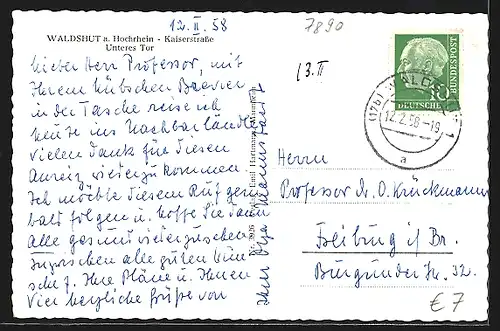 12.II.58
7890
WALDSHUT a. Hochrhein - Kaiserstraße
Unteres Tor
13.II
Lieber Herr Professor, mit
Ihrem hübschen Brevier
in der Tasche reise ich
heute ins Nachbarländle
vielen Dank für diesen
Anreiz wiederzukommen.
Ich möchte diesem Ruf gern
bald folgen u. hoffe Sie dann
alle gesund wiederzusehen.
Inzwischen alle guten Wün
sche f. Ihre Pläne u. Ihnen
vier herzliche Grüße von
Ihrer
DEUTSCHE
BUNDESPOST
10
(17b) WALDSHUT 1
12.2.58-19
a
Herrn
Professor Dr. O. Kruckmann
Freiburg i/Br.
Burgunder Str. 32.
€ 7